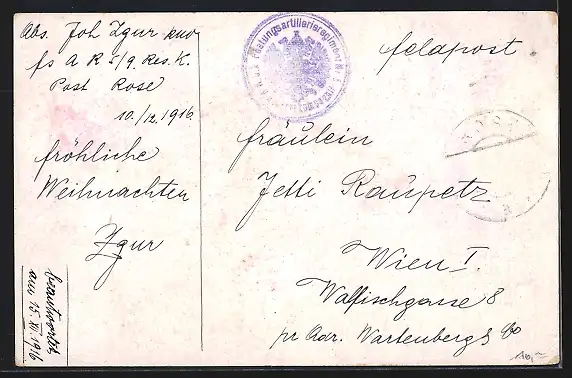 Abs. Joh Zgur
fs A R 5/9. Res. K.
Post Rose
10./12. 1916
fröhliche
Weihnachten
Zgur
beantwortet
am 15. XII. 1916
Festungsartillerieregiment Nr.
Feldpost
Fräulein
Jetti Raupetz
Wien I.
Walfischgasse 8
pr Adr. Wartenberg
10,-